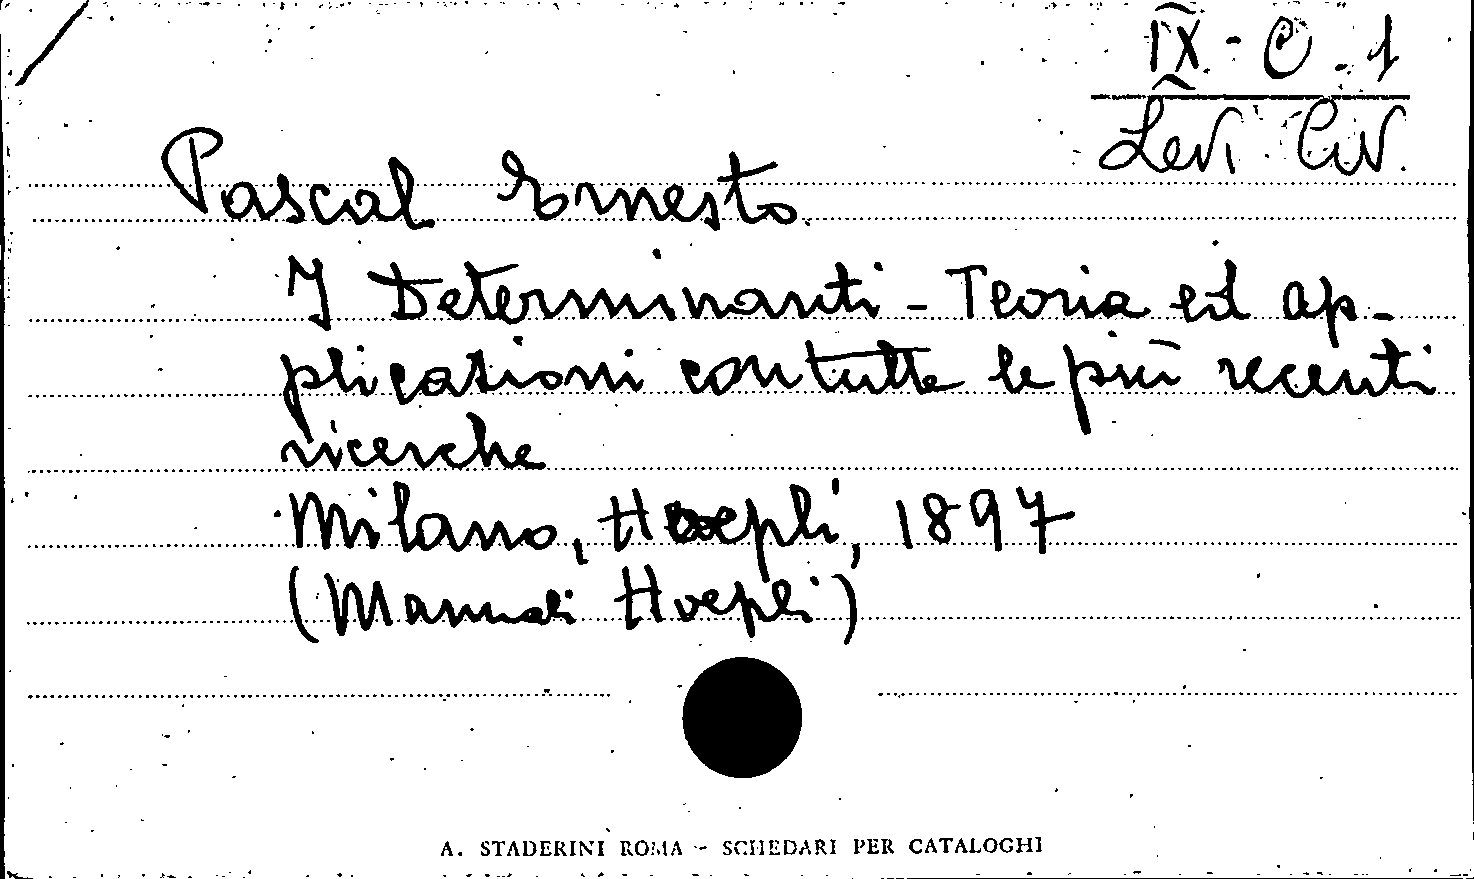 IX - C - 1
Levi Civ.
Pascal Ernesto
I Determinanti - Teoria ed ap-
plicazioni con tutte le più recenti
ricerche
Milano, Hoepli, 1897
(Manuali Hoepli)
A. STADERINI ROMA - SCHEDARI PER CATALOGHI